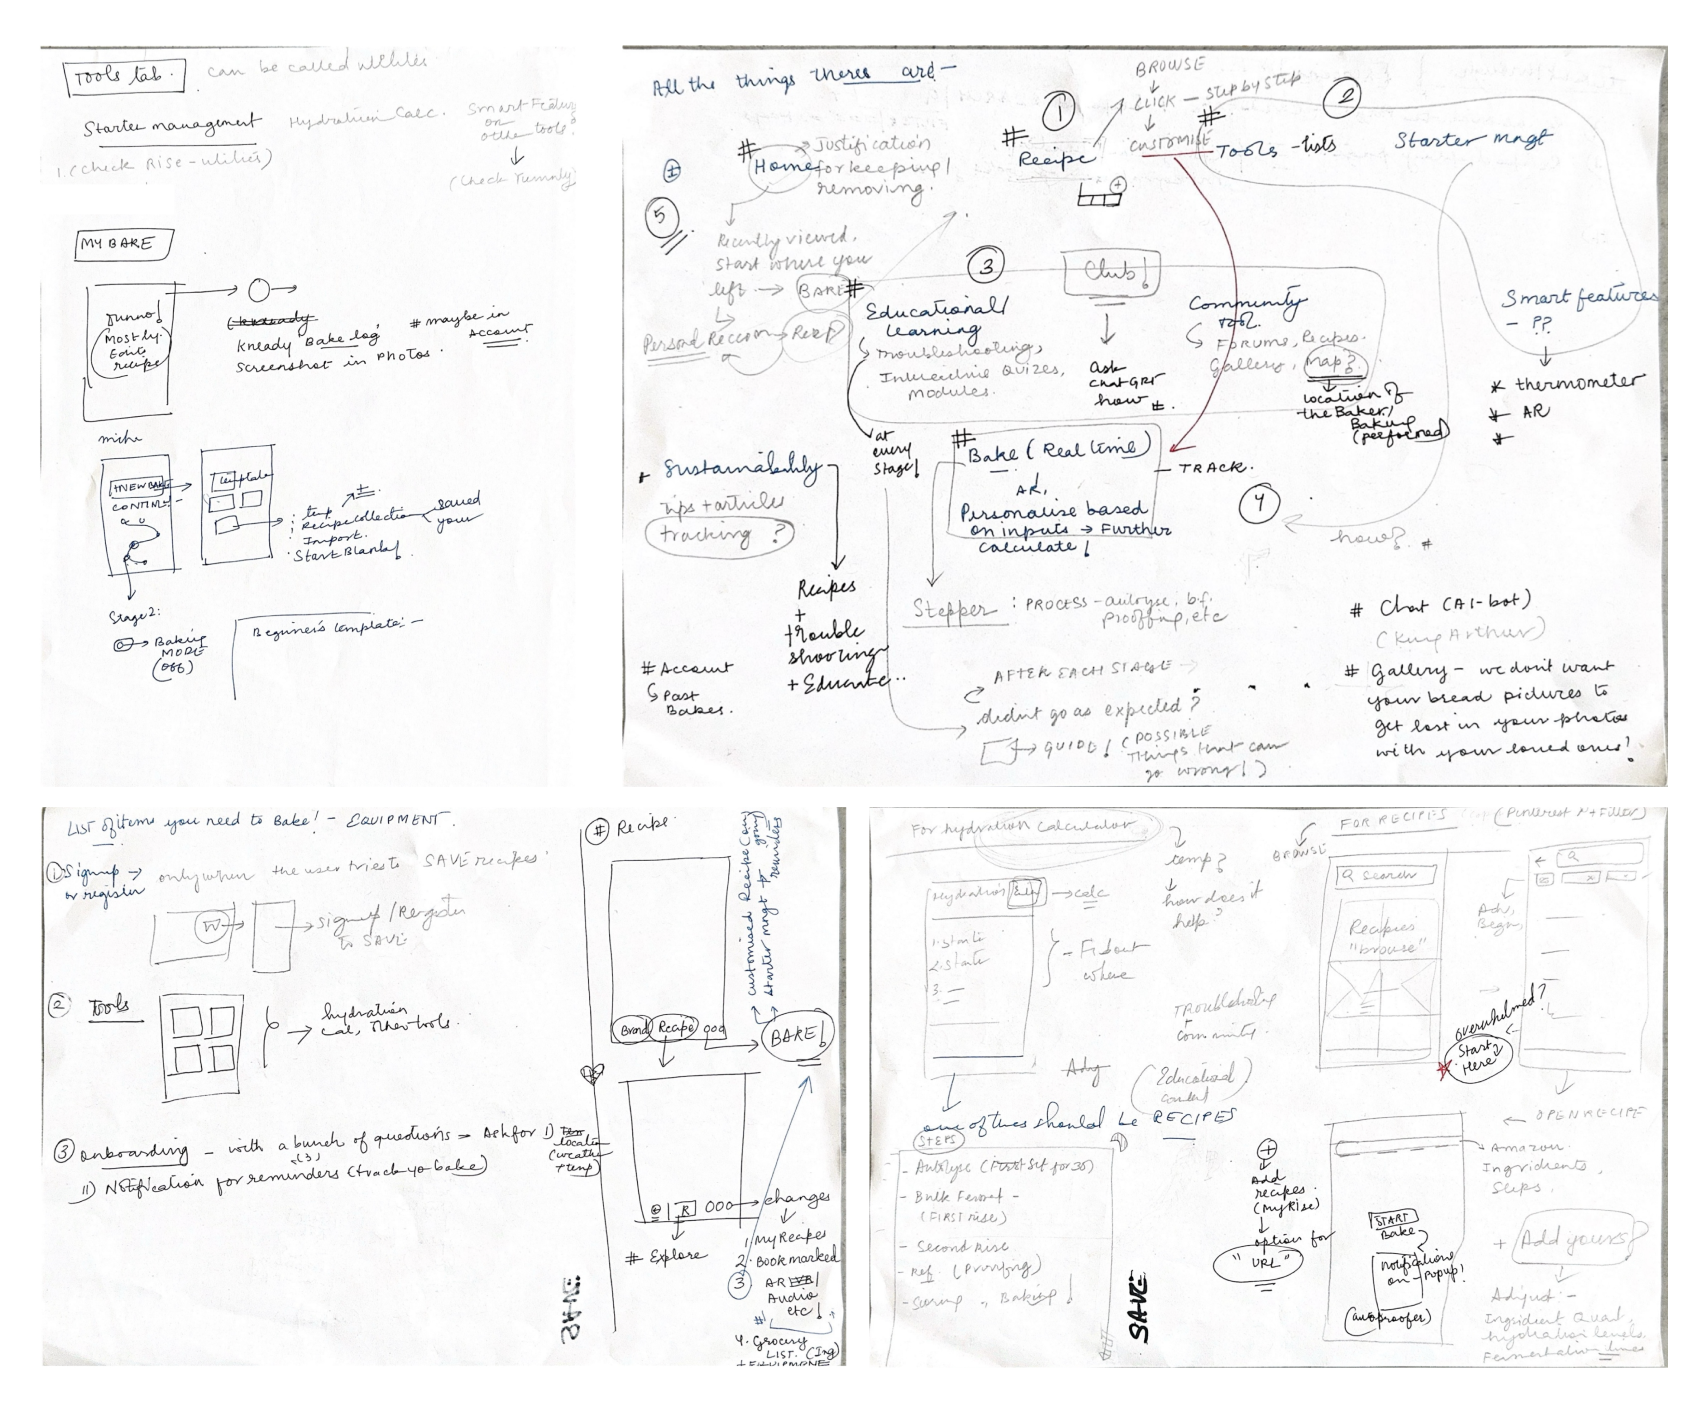 TOOLS tab.
can be called utilities
Starter management
Hydration Calc.
Smart Features
on
other tools?
1. (Check Rise - utilities)
(Check rummly)
MY BAKE
Mostly.
Edits
recipe
Kneady Bake log
Screenshot in Photos.
# maybe in
Account
niche
+NEW BAKE
CONTINUE
template
temp
Recipe collection
saved
your
Import.
Start Blank!
Stage 2:
Baking
MODE
(off)
Beginner's template: -
All the things theres are -
BROWSE
CLICK - Step by Step
CUSTOMISE
1
2
# Recipe
# Tools - lists
Starter mngt
# Home
Justification
for keeping/
removing.
5
Recently viewed.
Start where you
left
BAKE
Recip
3
Club!
# Educational/
Learning
Troubleshooting,
Interactive Quizes,
modules.
ask
ChatGPT
how #.
Community
Tool.
Forums, Recipes.
Gallery, map?
Location of
the Baker/
Baking
(performed)
Smart features
- ??
* thermometer
* AR
*
Sustainability
tips + articles
tracking ?
at
every
stage!
# Bake (Real time)
AR,
Personalise based
on inputs → Further
calculate!
TRACK.
4
how? #
Recipes
+
trouble
shooting
+ Educate..
Stepper : PROCESS - autolyse, b.f.
proofing, etc
# Account
Past
Bakes.
AFTER EACH STAGE →
didn't go as expected?
GUIDE! (POSSIBLE
Things that can
go wrong!)
# Chat (AI-bot)
(King Arthur)
# Gallery - we don't want
your bread pictures to
get lost in your photos
with your loved ones!
List of items you need to Bake! - EQUIPMENT.
1 Signup → only when the user tries to SAVE recipes.
or register
signup/Register
to SAVE
2 Tools
hydration
cal, other tools.
3 Onboarding - with a bunch of questions = Ask for 1)
(3)
location
(weather
+ temp)
11) Notification for reminders (track yo bake)
# Recipe
Brand Recipe 000
customised Recipe
starter mngt to
reminders
BAKE!
R 000 → changes
# Explore
1. My Recipes
2. Bookmarked
3 AR
Audio
etc!
4. Grocery
LIST. (Ing)
+ EQUIPMENT
SAVE:
For hydration calculator
temp?
how does it
help?
Hydration
calc
1. starter
2. starter
3. -
- Find out
where
Troubleshooting
+
community.
Adv
Educational
content
one of these should be RECIPES
STEPS
- Autolyse (First set for 30)
- Bulk Ferment -
(FIRST rise)
- Second Rise
- Ref. (Proofing)
- Scoring, Baking!
SAVE:
FOR RECIPES
(Pinterest + Filter)
BROWSE
Q Search
Recipies
"browse"
Adv,
Begin,
overwhelmed?
Start
Here
OPEN RECIPE
Amazon
Ingridients,
Steps.
Add
recipes.
(My Rise)
option for
"URL"
START
Bake
notifications
on - Popup!
(autoproofer)
+ Add yours?
Adjust: -
Ingridient Quant.
hydration levels.
Fermentation times